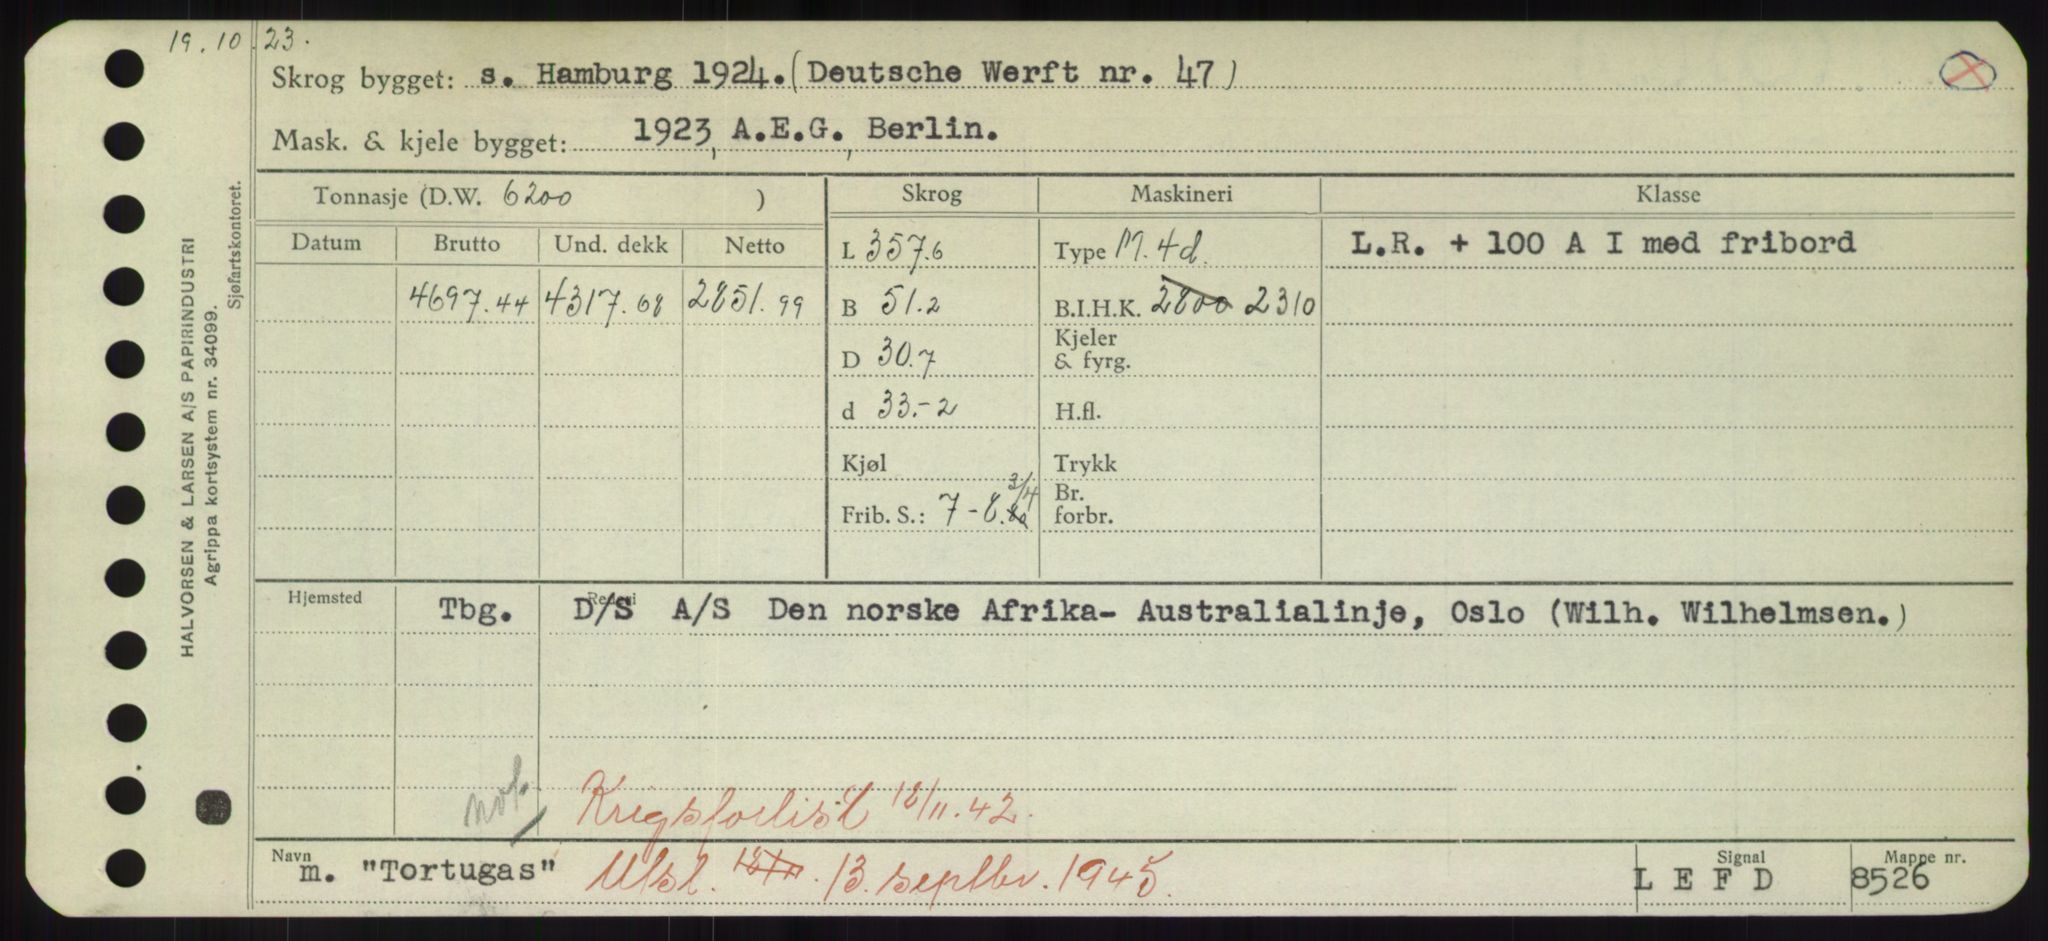 19.10.23.
Skrog bygget: s. Hamburg 1924. (Deutsche Werft nr. 47)
Mask. & kjele bygget: 1923, A.E.G., Berlin.
Tonnasje (D.W. 6200 ) Skrog Maskineri Klasse
Datum Brutto Und. dekk Netto L 357.6 Type M. 4d. L.R. + 100 A I med fribord
4697.44 4317.68 2851.99 B 51.2 B.I.H.K. 2800 2310
D 30.7 Kjeler & fyrg.
d 33.-2 H.fl.
Kjøl Trykk
Frib. S.: 7-8. 3/4 Br. forbr.
Hjemsted Tbg. Rederi D/S A/S Den norske Afrika- Australialinje, Oslo (Wilh. Wilhelmsen.)
not. Krigsforlist 12/11.42.
Navn m. "Tortugas" Utsl. 12/11. 13. septbr. 1945. Signal L E F D Mappe nr. 8526
HALVORSEN & LARSEN A/S PAPIRINDUSTRI
Agrippa kortsystem nr. 34099.
Sjøfartskontoret.